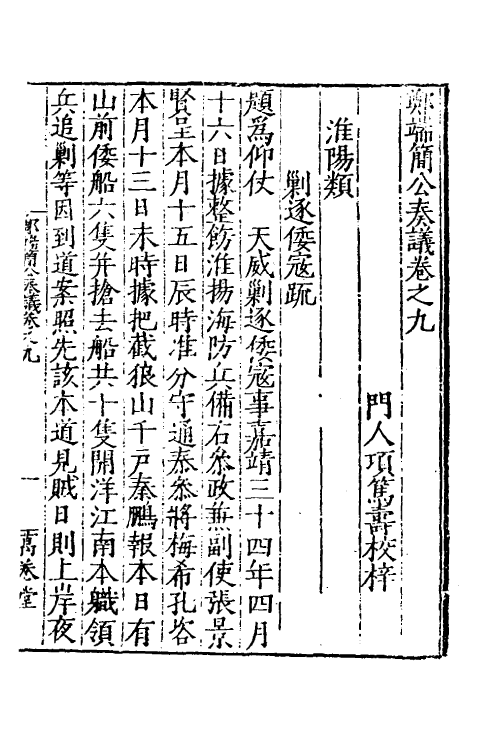 鄭端簡公奏議卷之九
門人項篤壽校梓
淮陽類
剿逐倭寇疏
題爲仰仗 天威剿逐倭寇事嘉靖三十四年四月
十六日據整飭淮揚海防兵備右叅政兼副使張景
賢呈本月十五日辰時准分守通泰叅將梅希孔咨
本月十三日未時據把截狼山千戸秦鵬報本日有
山前倭船六隻并搶去船共十隻開洋江南本職領
兵追剿等因到道案照先該本道見賊日則上岸夜
鄭端簡公奏議卷之九 一 萬卷堂